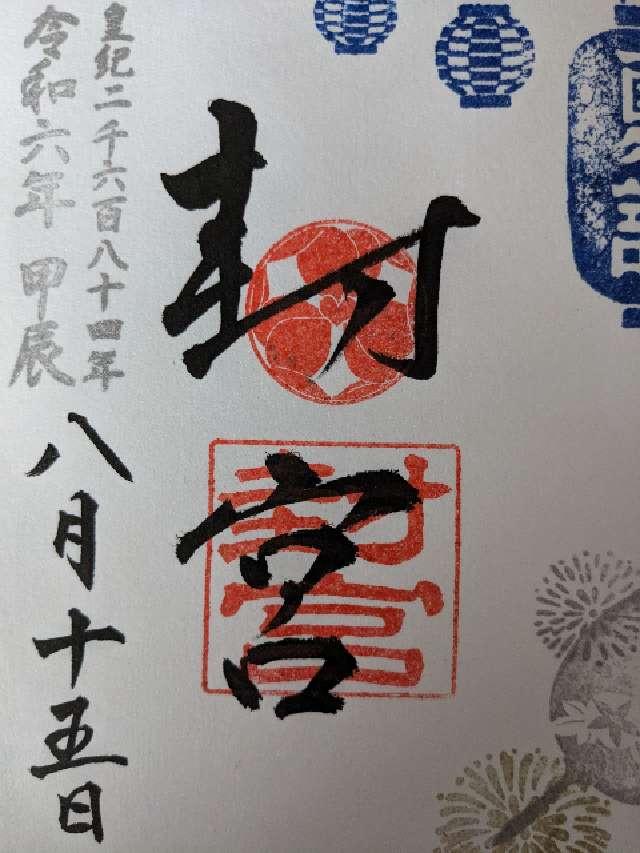 封宮
封宮
皇紀二千六百八十四年
令和六年 甲辰 八月十五日